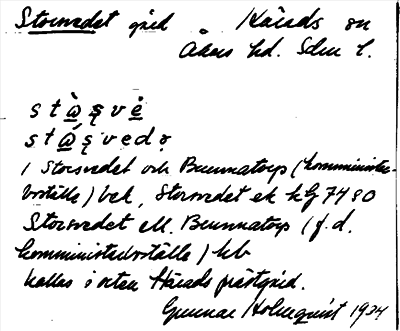 Storsvedet gård Härads sn
Åkers hd. Sdm l.
stå̀şvė
stǻşvedə
1 Storsvedet och Brunnatorp (komminister-
boställe) bek, Storsvedet ek kg 7480
Storsvedet ell. Brunnatorp (f.d.
komministerboställe) kb
kallas i orten Härads prästgård.
Gunnar Holmquist 1934